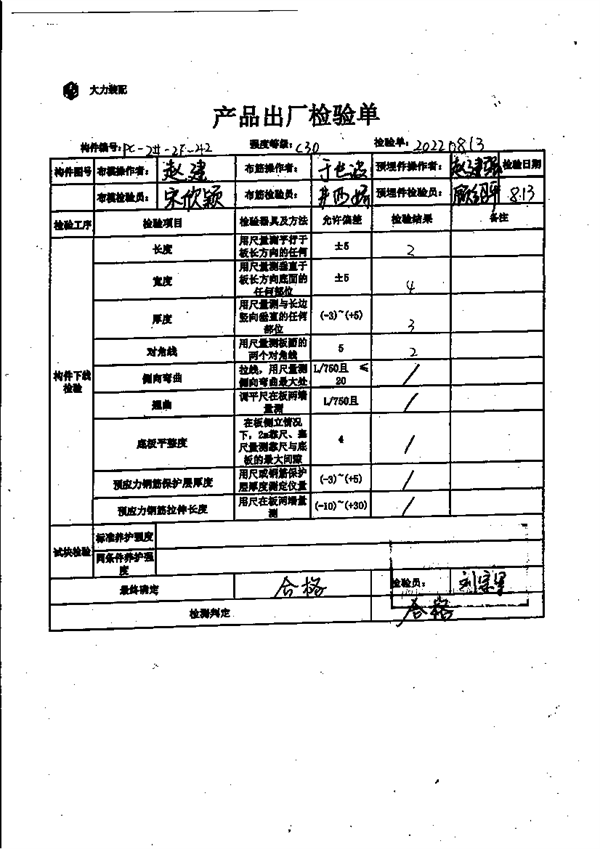 大力装配
产品出厂检验单
构件编号: PC-2#-2F-42 强度等级: C30 检验单: 20220813
构件图号 布模操作者: 赵建 布筋操作者: 预埋件操作者: 检验日期
布模检验员: 宋欣颖 布筋检验员: 预埋件检验员: 8.13
检验工序 检验项目 检验器具及方法 允许偏差 检验结果 备注
构件下线检验
长度 用尺量测平行于板长方向的任何 ±5 2
宽度 用尺量测垂直于板长方向底面的任何部位 ±5 4
厚度 用尺量测与长边竖向垂直的任何部位 (-3)~(+5) 3
对角线 用尺量测板面的两个对角线 5 2
侧向弯曲 拉线，用尺量测侧向弯曲最大处 L/750且 ≤20 /
翘曲 调平尺在板两端量测 L/750且 /
底板平整度 在板侧立情况下，2m靠尺、塞尺量测靠尺与底板的最大间隙 4 /
预应力钢筋保护层厚度 用尺或钢筋保护层厚度测定仪量 (-3)~(+5) /
预应力钢筋拉伸长度 用尺在板两端量测 (-10)~(+30) /
试块检验
标准养护强度
同条件养护强度
最终确定 合格 检验员:
检测判定 合格